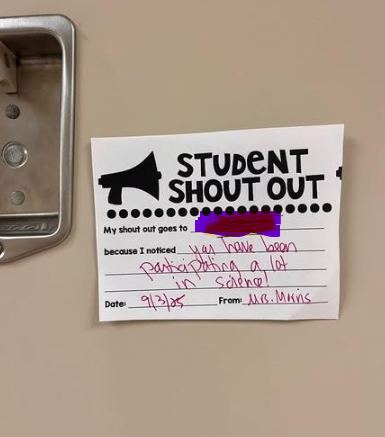 STUDENT
SHOUT OUT
My shout out goes to
because I noticed you have been
participating a lot
in science!
Date: 9/3/25 From: Mrs.